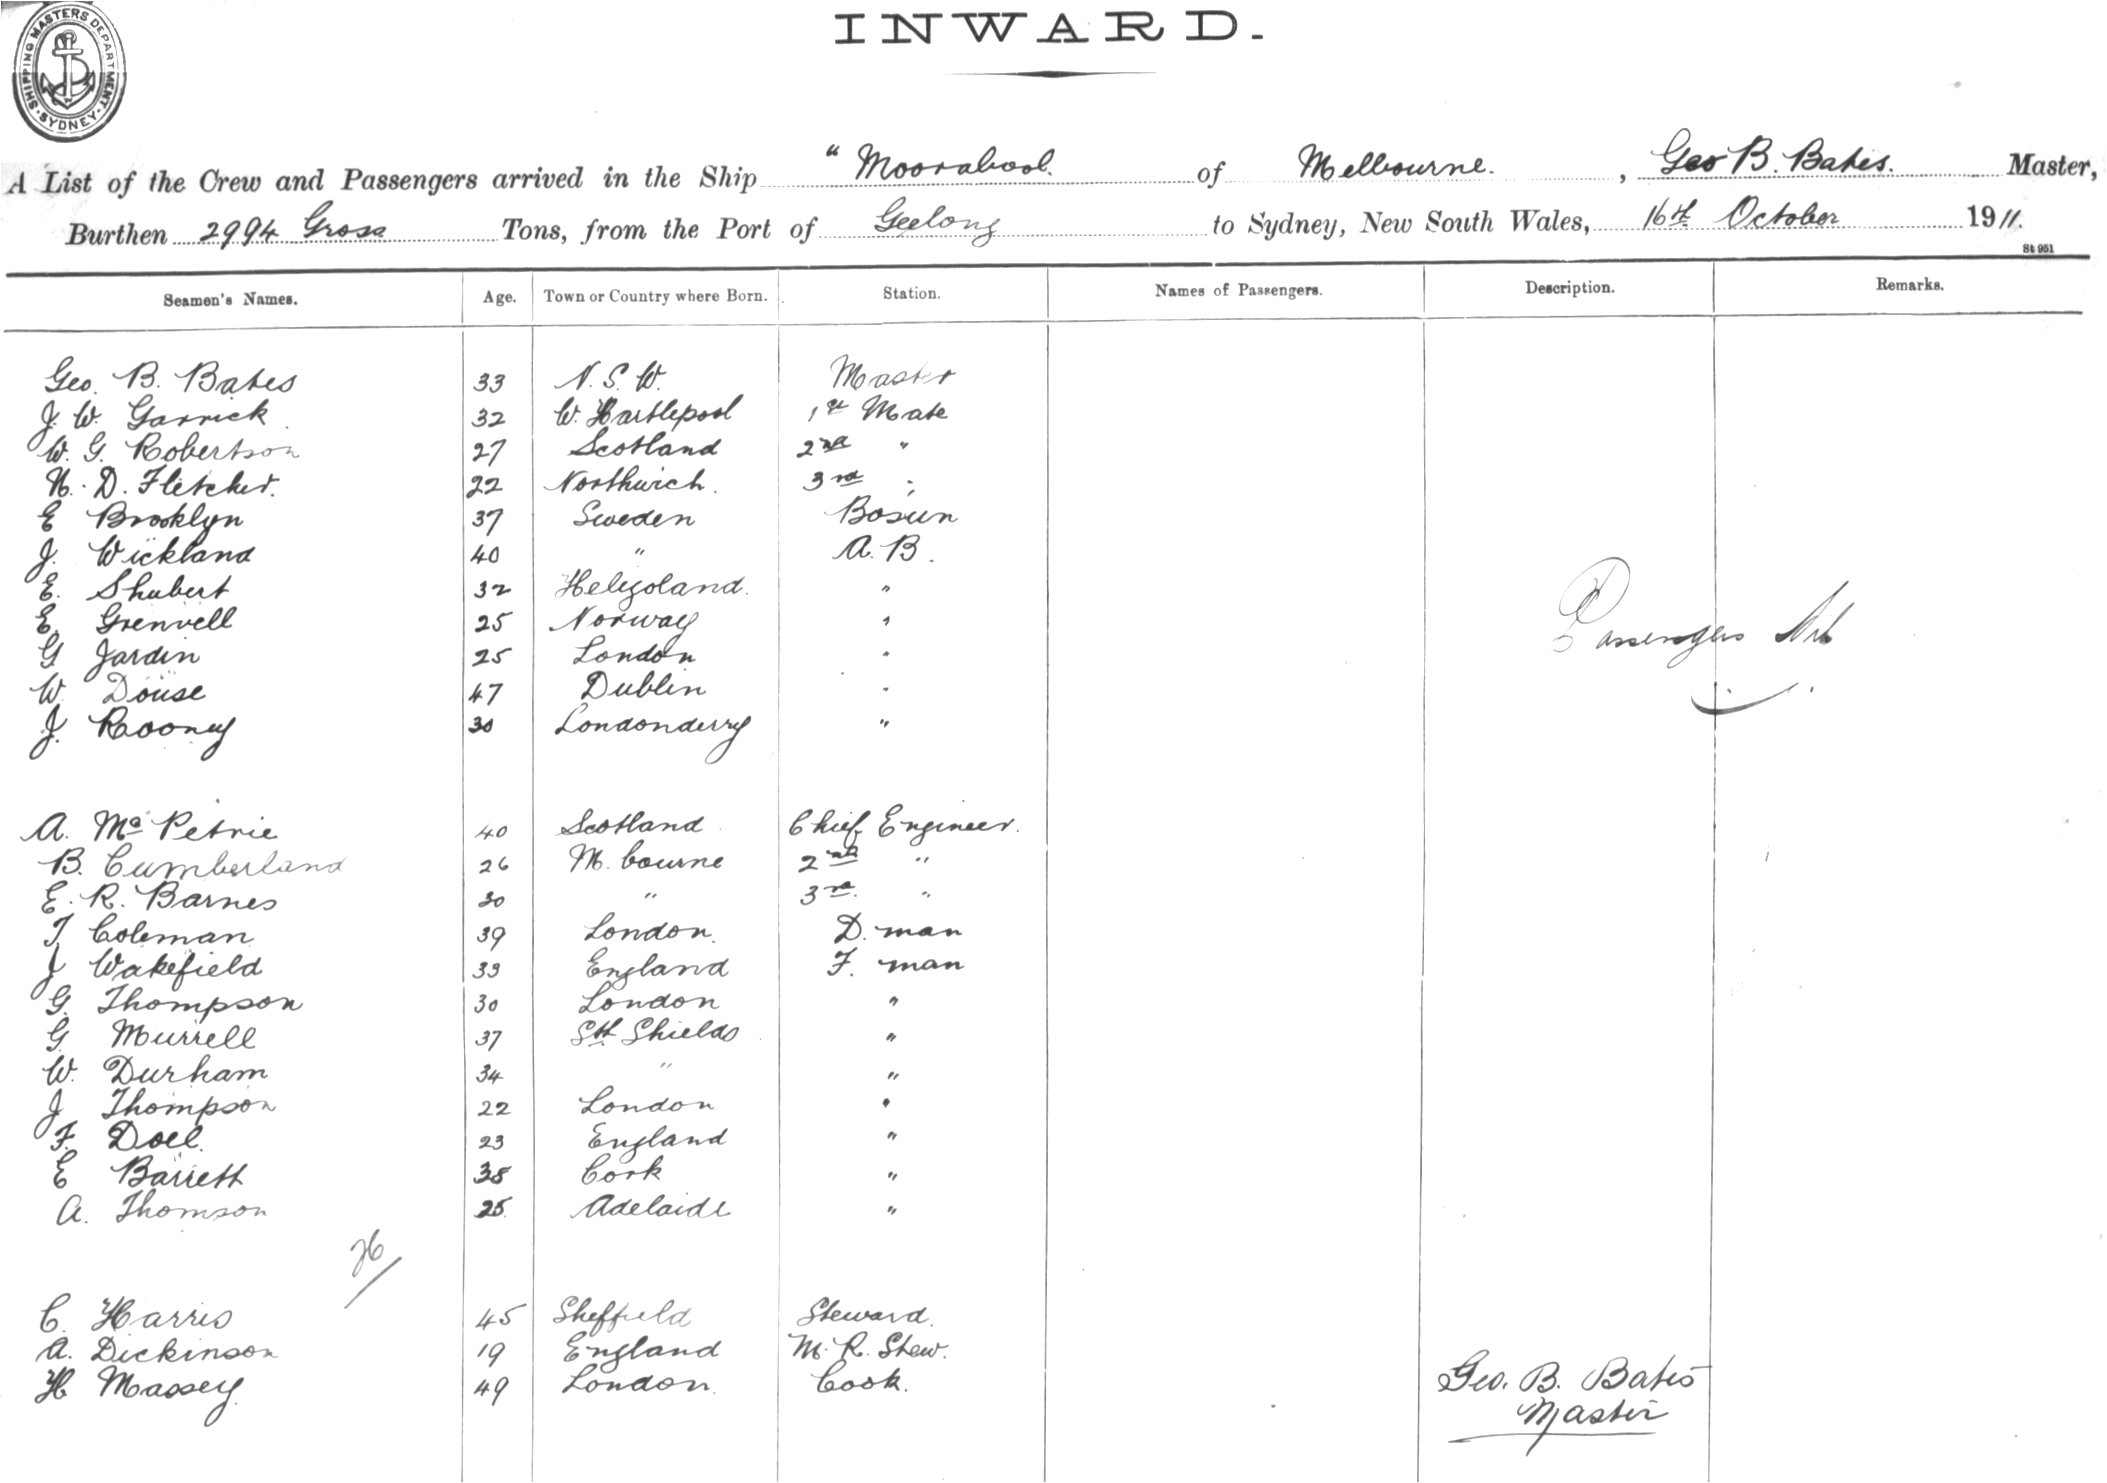 SHIPPING MASTERS DEPARTMENT. SYDNEY.
INWARD.
A List of the Crew and Passengers arrived in the Ship "Moorabool. of Melbourne. , Geo B. Bates. Master,
Burthen 2994 Gross Tons, from the Port of Geelong to Sydney, New South Wales, 16th October 1911.
St 951
Seamen's Names. Age. Town or Country where Born. Station. Names of Passengers. Description. Remarks.
Geo. B. Bates 33 N. S. W. Master
J. W. Garrick 32 W. Hartlepool 1st Mate
W. G. Robertson 27 Scotland 2nd "
H. D. Fletcher. 22 Northwich. 3rd "
E Brooklyn 37 Sweden Bosun
J. Wickland 40 " A. B.
E. Shubert 32 Heligoland. "
E. Grenvell 25 Norway "
G Jardin 25 London "
Passengers Nil
W. Douse 47 Dublin "
J. Rooney 30 Londonderry "
A. Mc Petrie 40 Scotland Chief Engineer.
B. Cumberland 26 M. bourne 2nd "
E. R. Barnes 30 " 3rd "
T Coleman 39 London. D. man
J Wakefield 33 England F. man
G. Thompson 30 London "
G Murrell 37 Sth Shields "
W. Durham 34 " "
J Thompson 22 London "
F. Doel. 23 England "
E Barrett 38 Cork "
A. Thomson 25 Adelaide "
26/
C. Harris 45 Sheffield Steward.
A. Dickinson 19 England M. R. Stew.
H Massey. 49 London. Cook.
Geo. B. Bates
Master